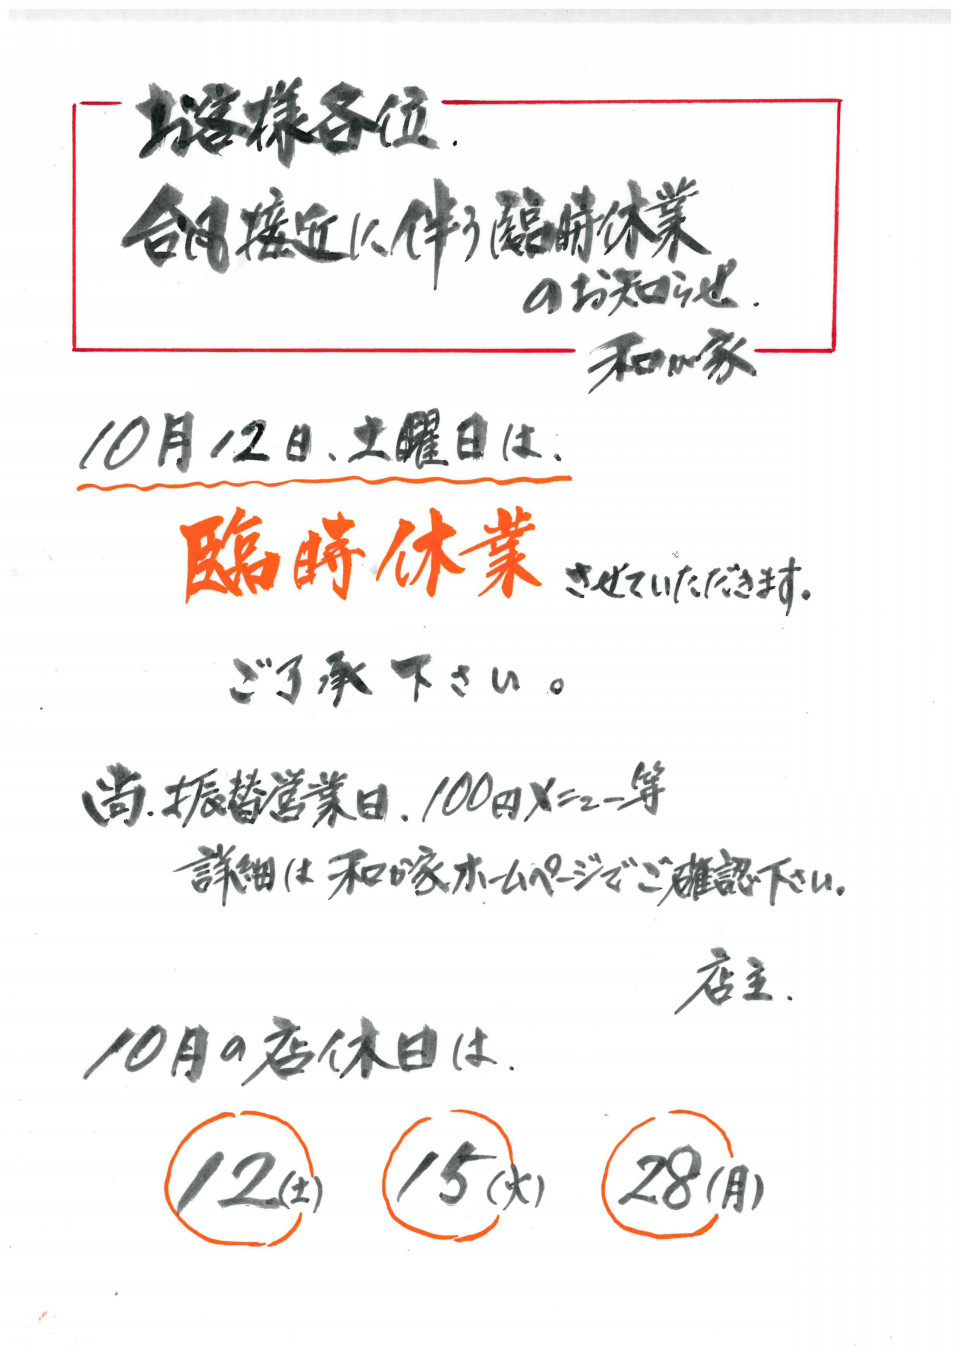 お客様各位.
台風接近に伴う臨時休業
のお知らせ.
和が家
10月12日、土曜日は、
臨時休業させていただきます。
ご了承下さい。
尚、振替営業日、100円メニュー等
詳細は和が家ホームページでご確認下さい。
店主.
10月の店休日は、
12(土) 15(火) 28(月)